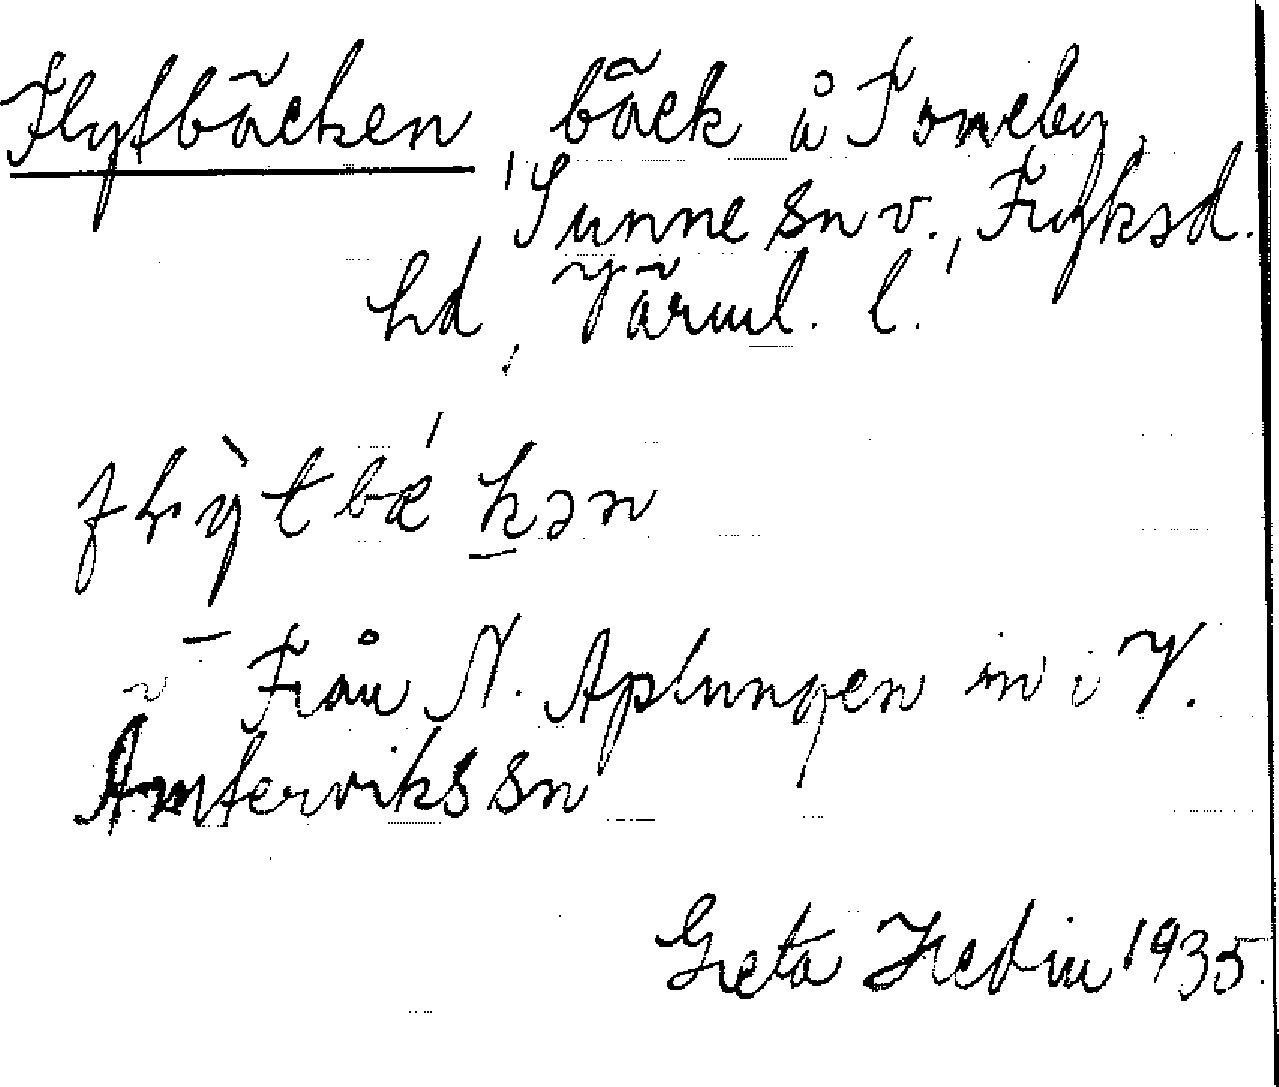 Flytbäcken, bäck å Toneby,
Sunne sn v., Fryksd.
hd, Värml. l.
flỳtbǽkən
– Från N. Aplungen in i V.
Ämterviks sn
Greta Hedin 1935.